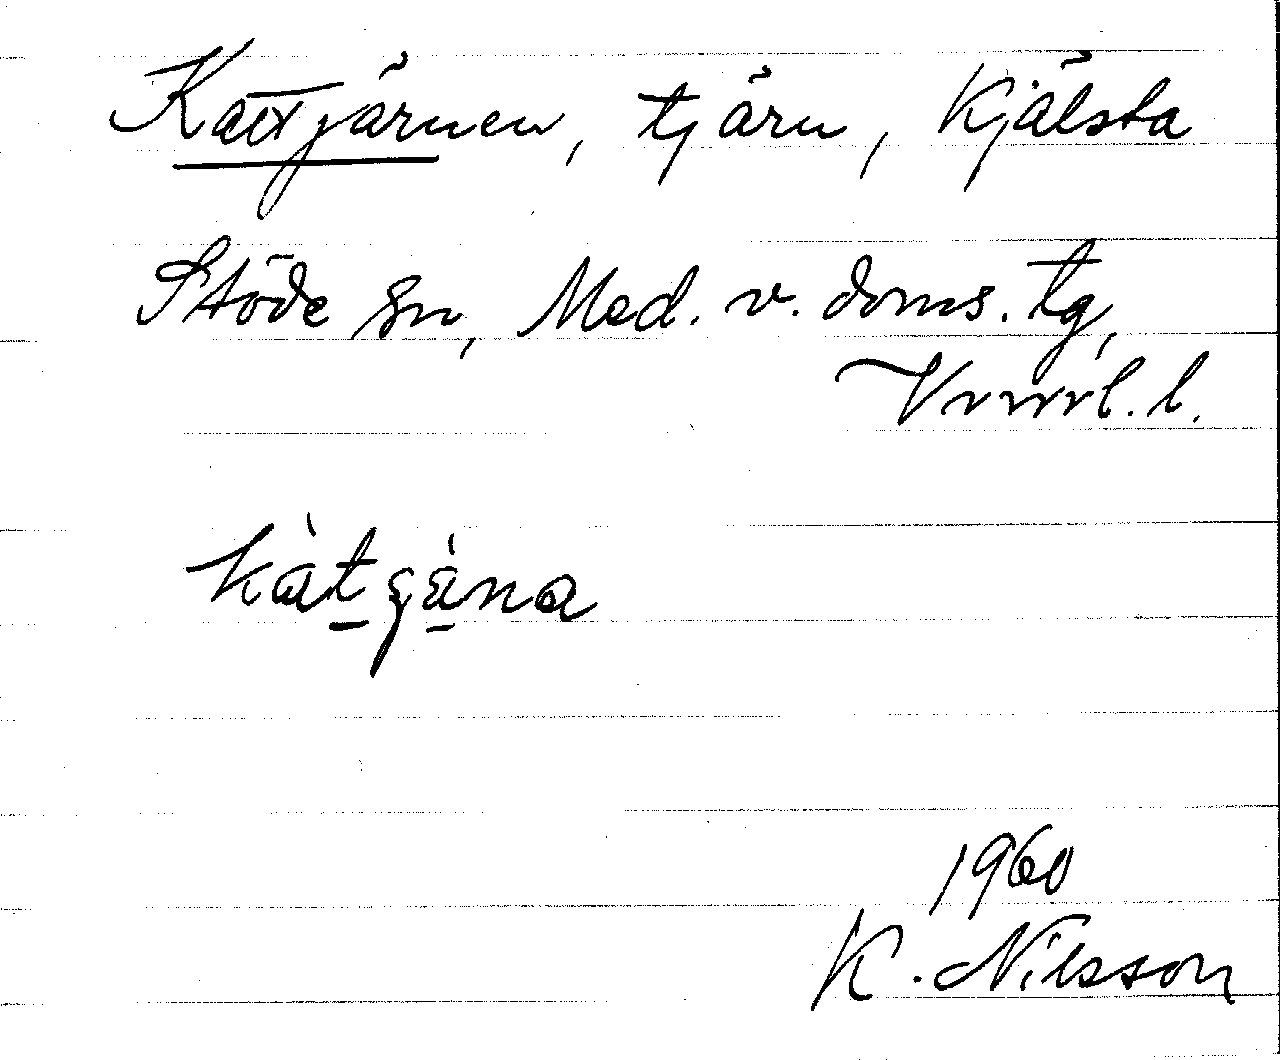 Kattjärnen, tjärn, Kjälsta
Stöde sn, Med. v. doms. tg,
Vrnrl. l.
1960
K. Nilsson